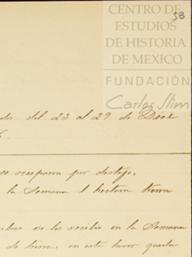 CENTRO DE
ESTUDIOS
DE HISTORIA
DE MEXICO
FUNDACIÓN
Carlos Slim
38
del 23 al 29 de
por destajo,
la Semana 1 hectara
se la recibio en la Semana
de tierra, en este haver queda